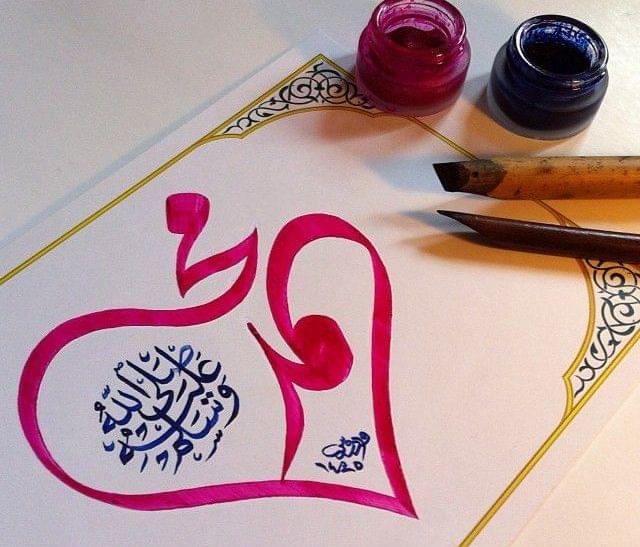 محمد
صلى الله عليه وسلم
١٤٣٥